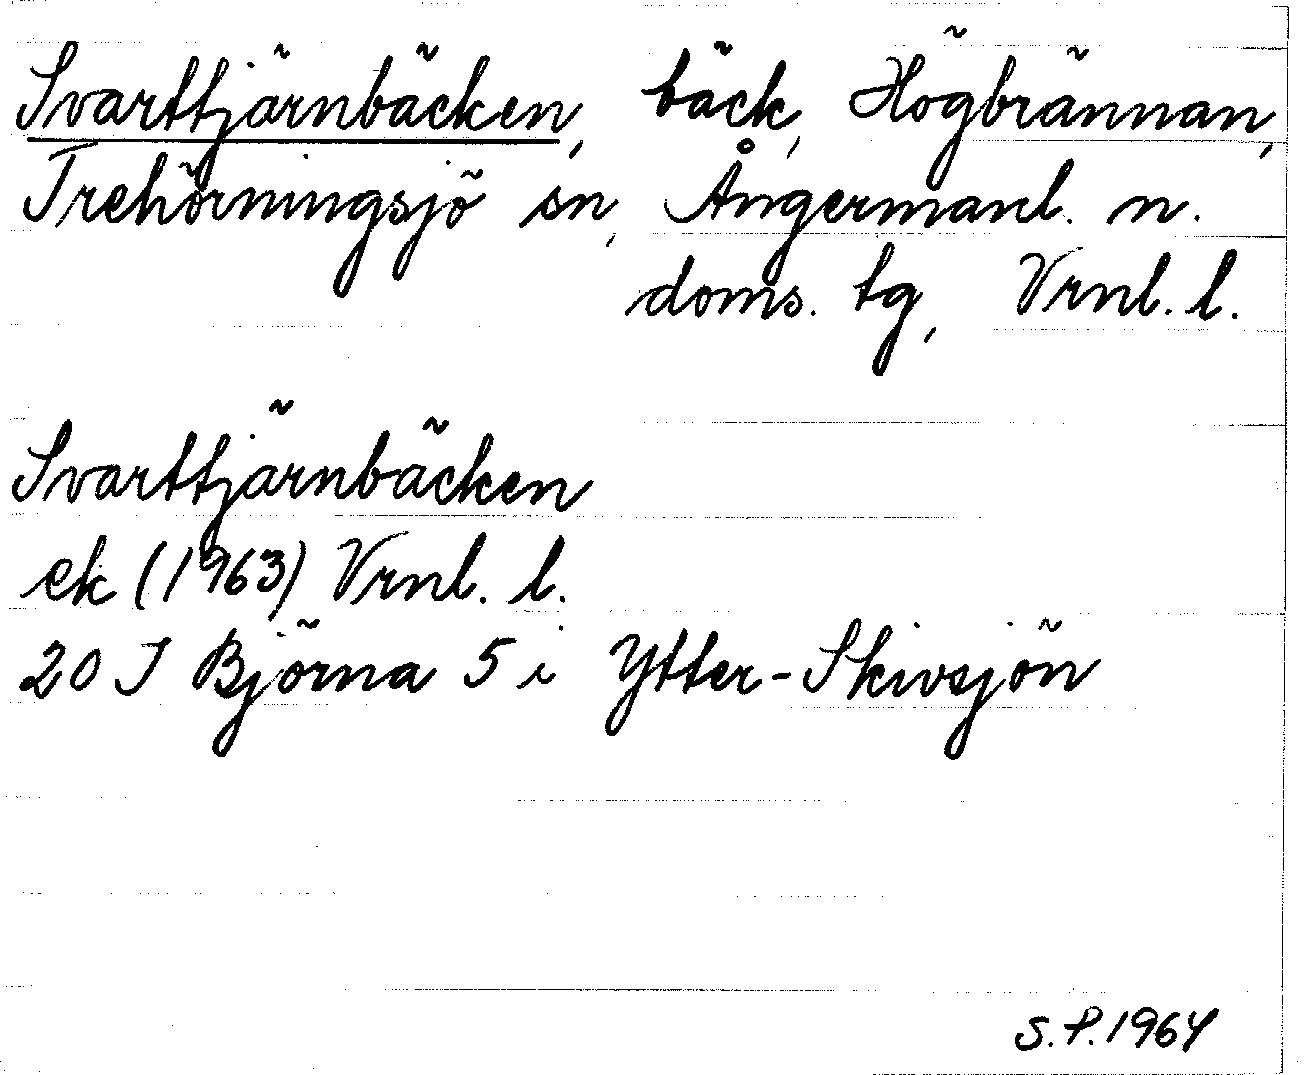 Svarttjärnbäcken, bäck, Högbrännan,
Trehörningsjö sn, Ångermanl. n.
doms. tg, Vrnl. l.
Svarttjärnbäcken
ek (1963) Vrnl. l.
20 J Björna 5 i Ytter-Skivsjön
S.P. 1964